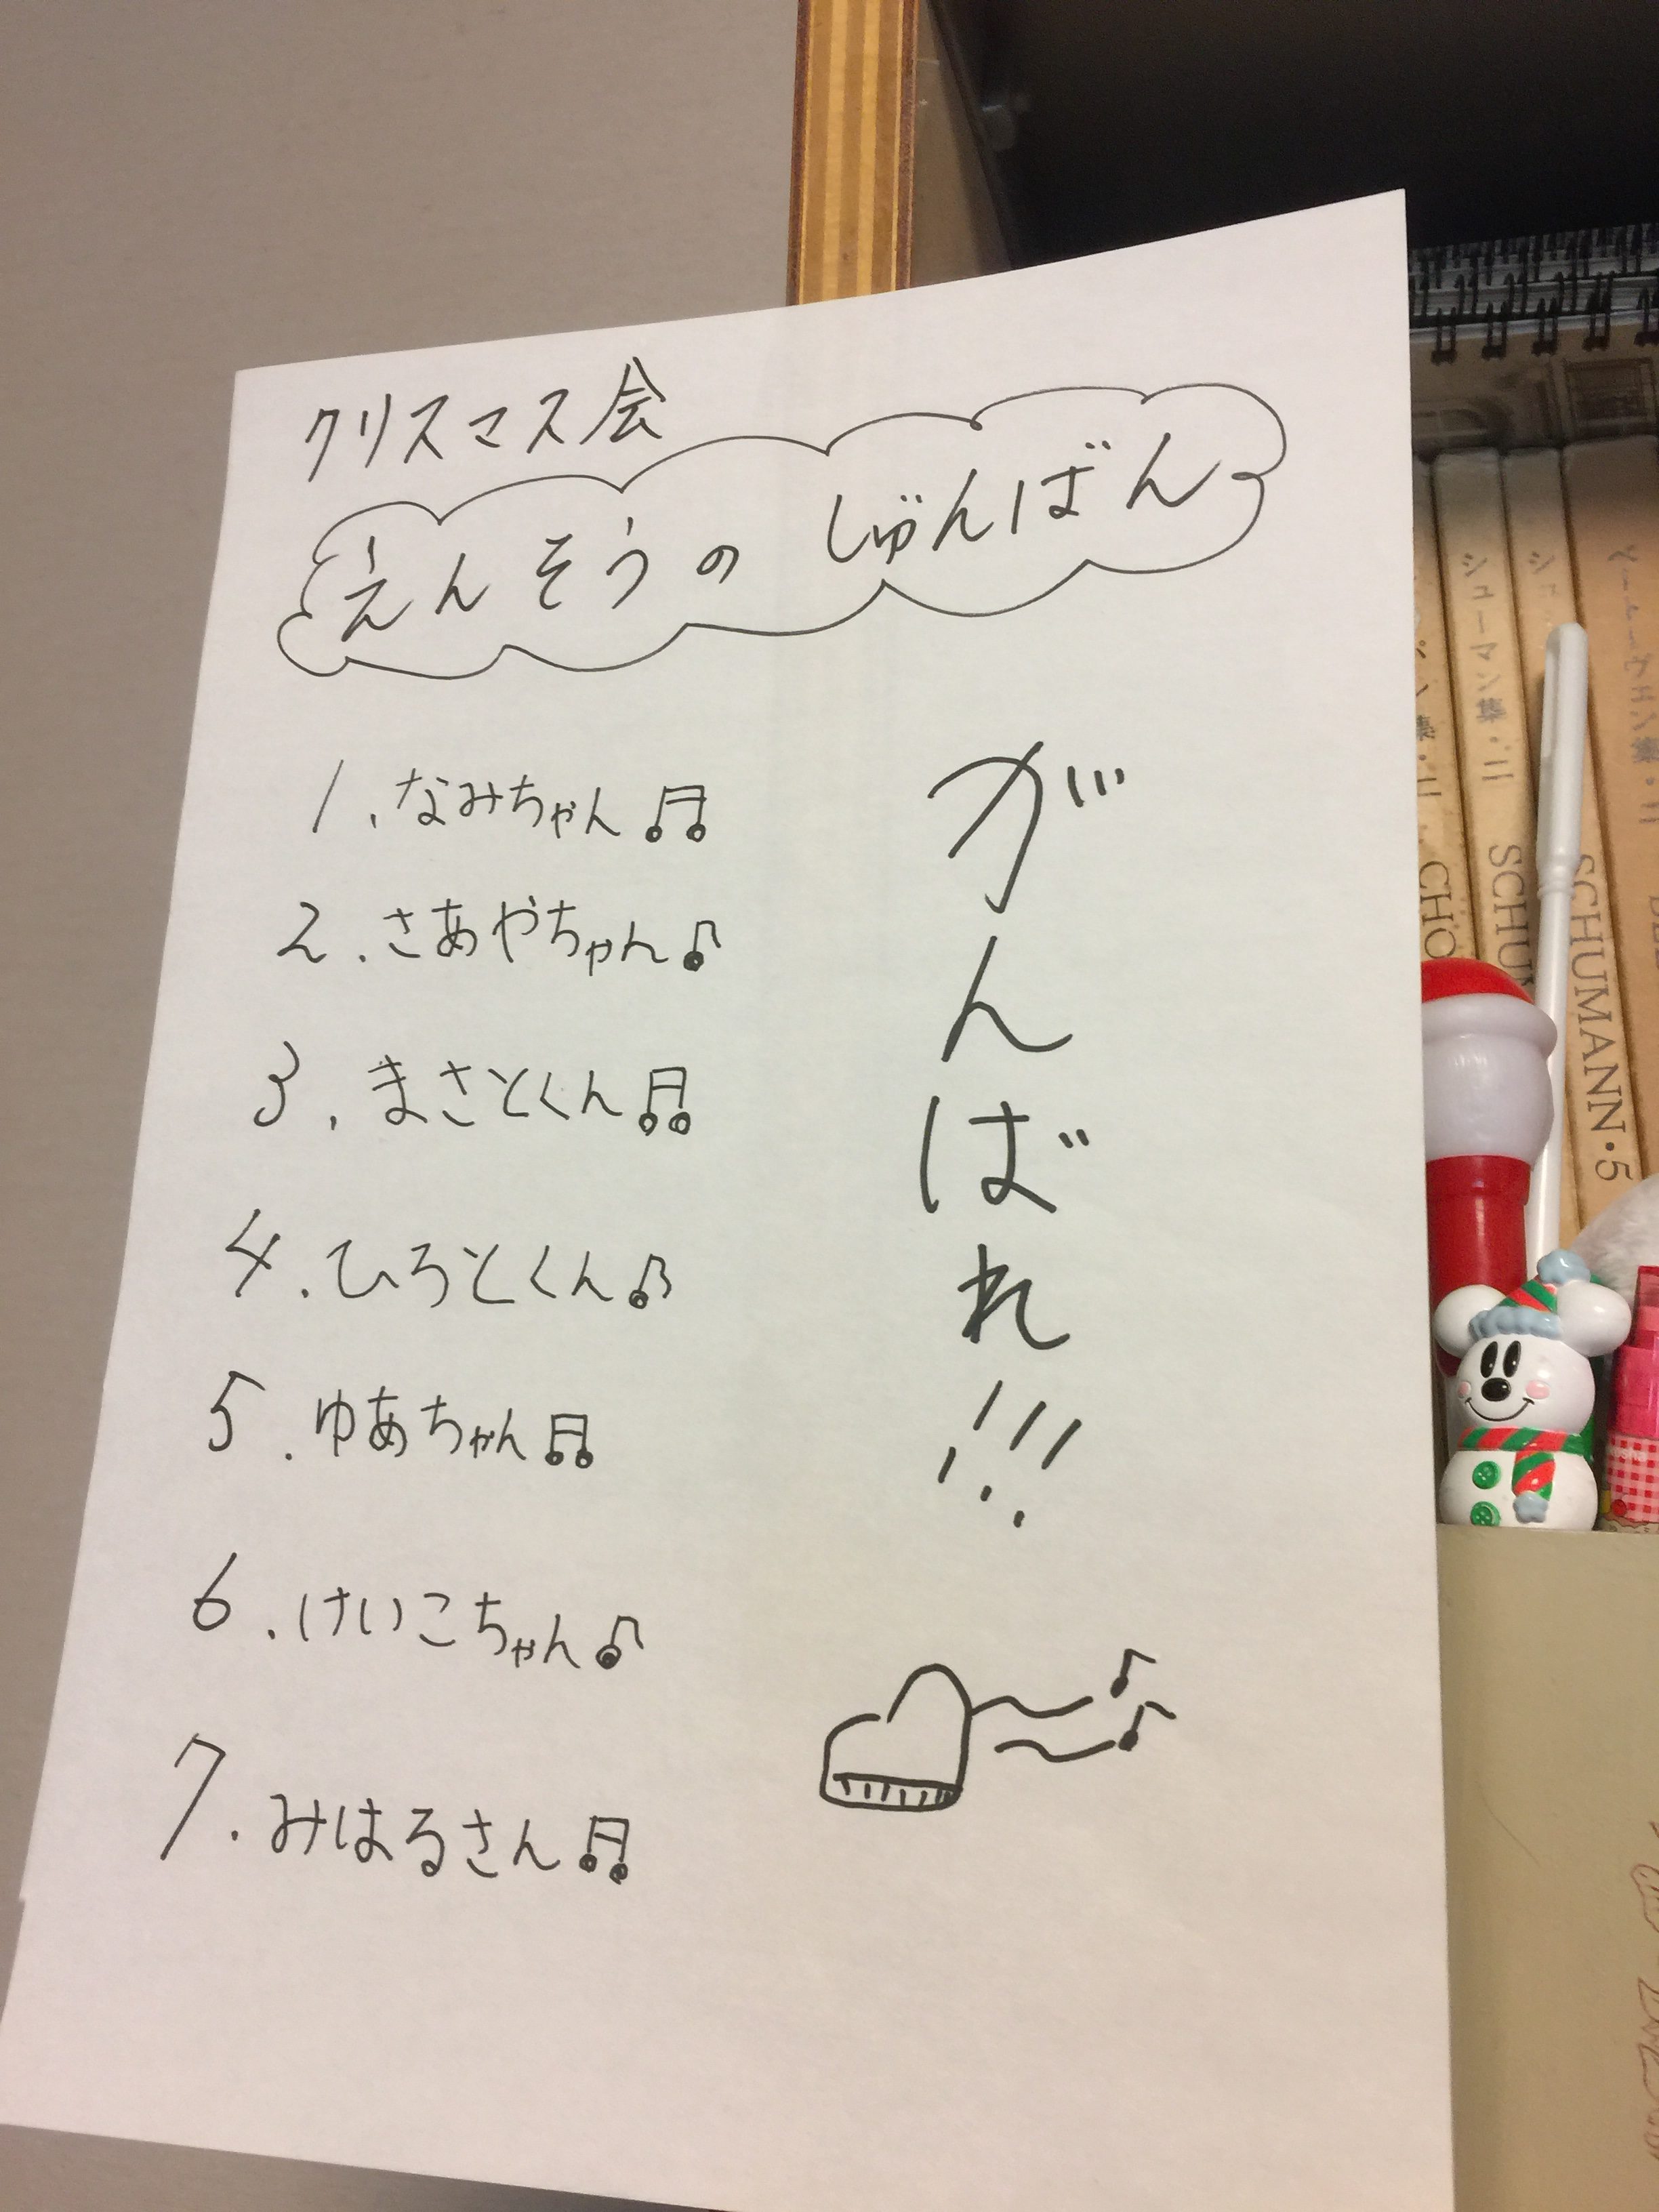 クリスマス会
えんそうの じゅんばん
1.なみちゃん♫
2.さあやちゃん♪
3.まさとくん♫
4.ひろとくん♪
5.ゆあちゃん♫
6.けいこちゃん♪
7.みはるさん♫
がんばれ!!!
シューマン集・
SCHUMANN・5